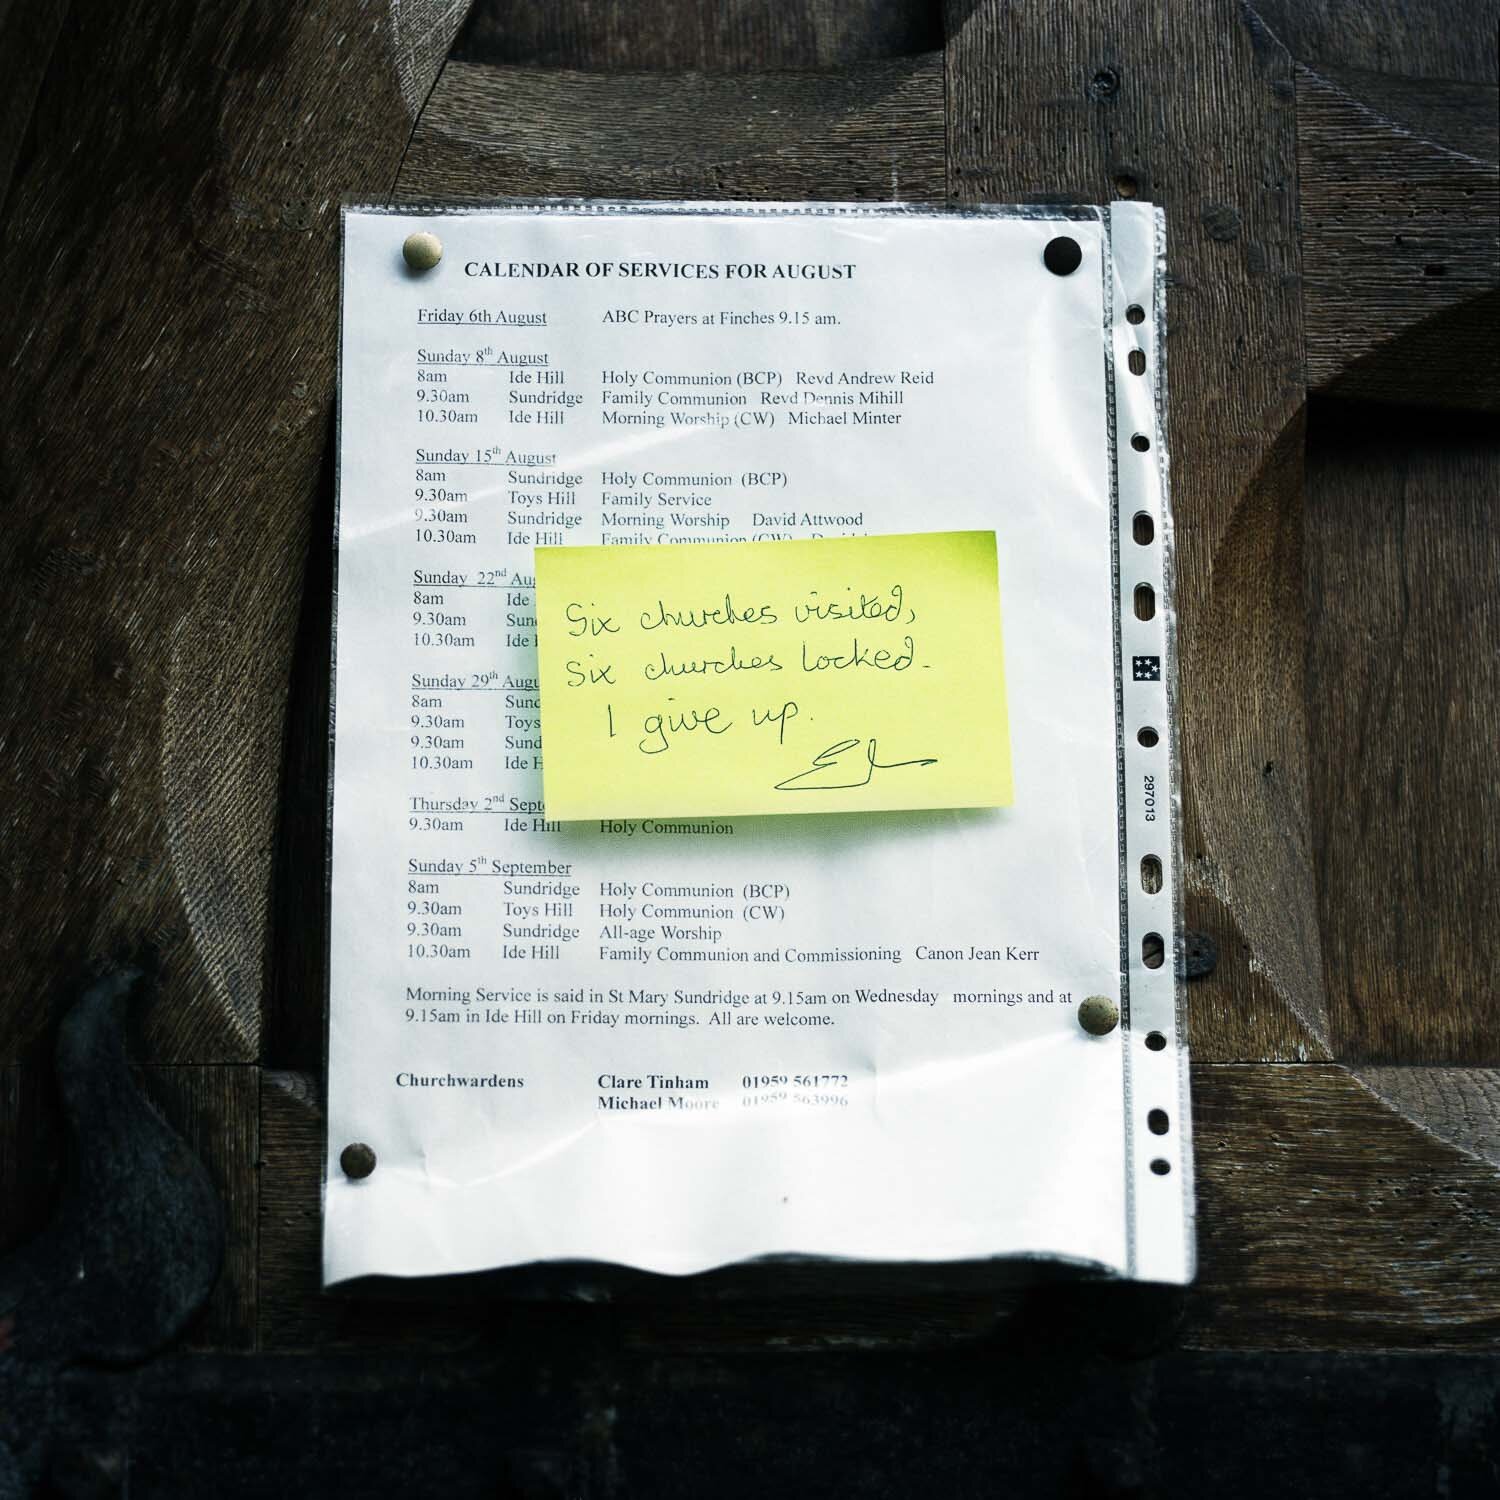 CALENDAR OF SERVICES FOR AUGUST
Friday 6th August ABC Prayers at Finches 9.15 am.
Sunday 8th August
8am Ide Hill Holy Communion (BCP) Revd Andrew Reid
9.30am Sundridge Family Communion Revd Dennis Mihill
10.30am Ide Hill Morning Worship (CW) Michael Minter
Sunday 15th August
8am Sundridge Holy Communion (BCP)
9.30am Toys Hill Family Service
9.30am Sundridge Morning Worship David Attwood
10.30am Ide Hill Family Communion (CW)
Sunday 22nd
8am Ide
9.30am
10.30am Ide
Sunday 29th
8am
9.30am Toys
9.30am
10.30am Ide
Thursday 2nd
9.30am Ide Hill Holy Communion
Sunday 5th September
8am Sundridge Holy Communion (BCP)
9.30am Toys Hill Holy Communion (CW)
9.30am Sundridge All-age Worship
10.30am Ide Hill Family Communion and Commissioning Canon Jean Kerr
Morning Service is said in St Mary Sundridge at 9.15am on Wednesday mornings and at
9.15am in Ide Hill on Friday mornings. All are welcome.
Churchwardens Clare Tinham 01959 561772
Michael Moore 01959 563996
Six churches visited,
Six churches locked.
I give up.
297013